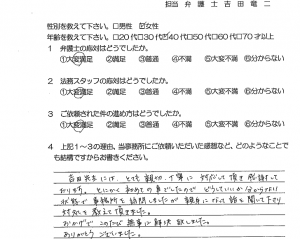 担当 弁護士 吉田 竜二
性別を教えて下さい。 □男性 ☑女性
年齢を教えて下さい。 □20代□30代☑40代□50代□60代□70才以上
1 弁護士の応対はどうでしたか。
①大変満足 ②満足 ③普通 ④不満 ⑤大変不満 ⑥分からない
2 法務スタッフの応対はどうでしたか。
①大変満足 ②満足 ③普通 ④不満 ⑤大変不満 ⑥分からない
3 ご依頼された件の進め方はどうでしたか。
①大変満足 ②満足 ③普通 ④不満 ⑤大変不満 ⑥分からない
4 上記1~3の理由、当事務所にご依頼いただいた感想など、どのようなことで
も結構ですからお書きください。
吉田先生には、とても親切、丁寧に対応して頂き感謝して
おります。とにかく初めての事でしたのでどうしていいか分からない
状態で事務所を訪問しましたが親身になって話を聞いて下さり
対応も教えて頂きました。
おかげでこのたび無事に解決致しました。
ありがとうございました。